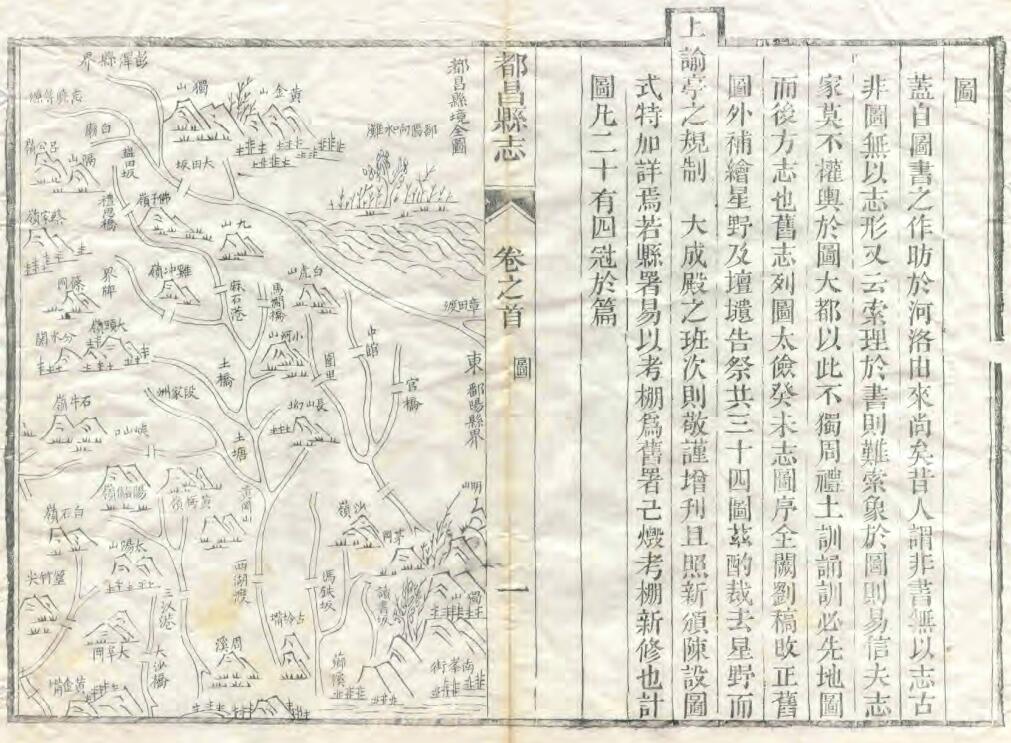 圖
蓋自圖書之作昉於河洛由來尚矣昔人謂非書無以志古
非圖無以志形又云索理於書則難索象於圖則易信夫志
家莫不權輿於圖大都以此不獨周禮土訓誦訓必先地圖
而後方志也舊志列圖太儉癸未志圖序全闕劉稿改正舊
圖外補繪星野及壇壝告祭共三十四圖茲酌裁去星野而
上諭亭之規制 大成殿之班次則敬謹增刊且照新頒陳設圖
式特加詳焉若縣署易以考棚爲舊署已燬考棚新修也計
圖凡二十有四冠於篇
都昌縣志 卷之首 圖 一
都昌縣境全圖
鄱陽向水灘
章田渡
東 鄱陽縣界
黃金山
獨山
彭澤縣界
大田坂
白廟
呂公嶺
陽山
蔡家嶺
佛子嶺
九山
白虎山
界牌
雞冲嶺
麻石港
馬澗橋
小河山
中館
官橋
圖里
大頭嶺
分水關
土橋
段家洲
長山
石牛嶺
土塘
黃岡山
白石嶺
太陽山
篁竹尖
三汊港
大沙橋
西湖渡
周溪
馮鉄坂
沙嶺
讀書坂
明山
南峯街
薌溪
黃金嘴